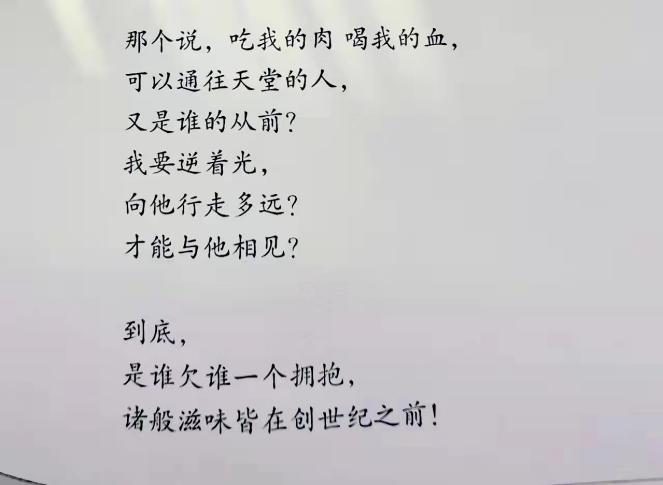 那个说，吃我的肉 喝我的血，
可以通往天堂的人，
又是谁的从前？
我要逆着光，
向他行走多远？
才能与他相见？
到底，
是谁欠谁一个拥抱，
诸般滋味皆在创世纪之前！